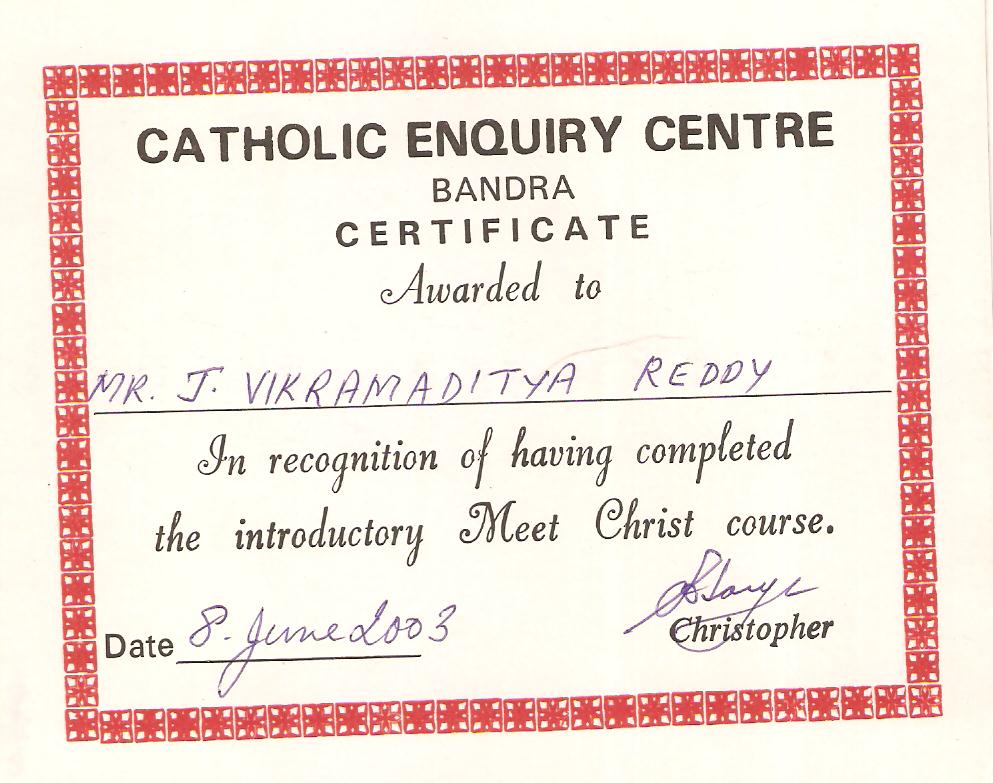 CATHOLIC ENQUIRY CENTRE
BANDRA
CERTIFICATE
Awarded to
MR. J. VIKRAMADITYA REDDY
In recognition of having completed
the introductory Meet Christ course.
Date 8. June 2003
Christopher